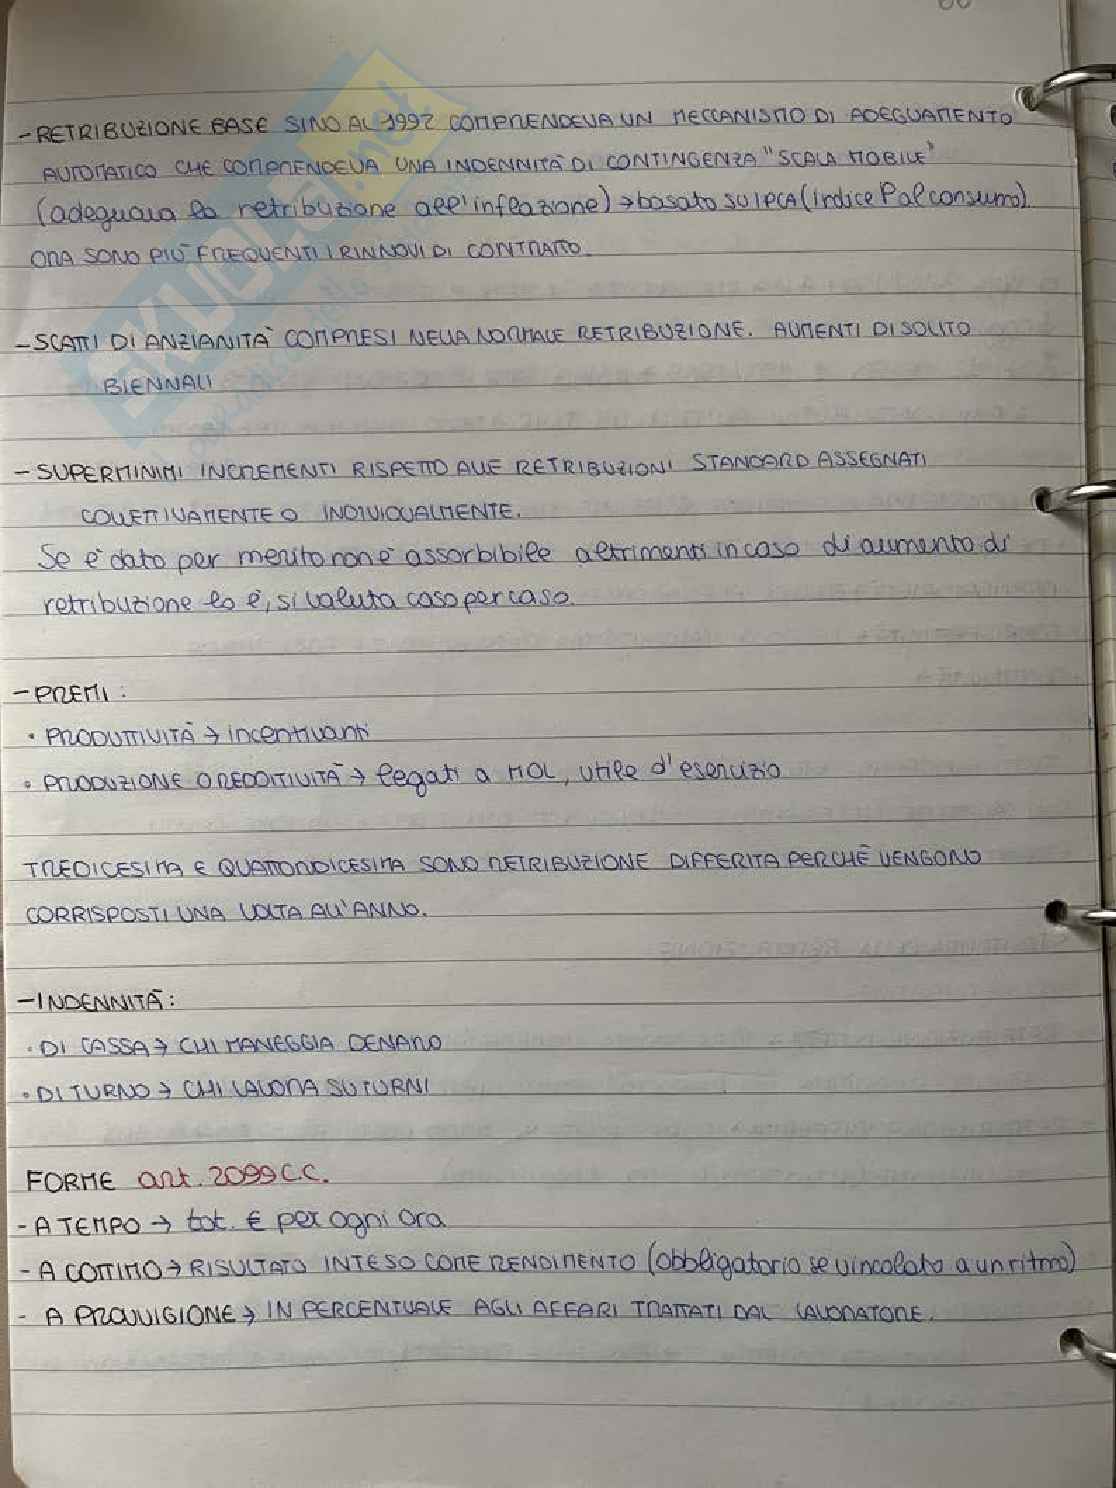 - RETRIBUZIONE BASE SINO AL 1992 COMPRENDEVA UN MECCANISMO DI ADEGUAMENTO
AUTOMATICO CHE COMPRENDEVA UNA INDENNITÀ DI CONTINGENZA "SCALA MOBILE"
(adeguava la retribuzione all'inflazione) → basato su IPCA (indice P al consumo).
ORA SONO PIÙ FREQUENTI I RINNOVI DI CONTRATTO.
- SCATTI DI ANZIANITÀ COMPRESI NELLA NORMALE RETRIBUZIONE. AUMENTI DI SOLITO
BIENNALI
- SUPERMINIMI INCREMENTI RISPETTO ALLE RETRIBUZIONI STANDARD ASSEGNATI
COLLETTIVAMENTE O INDIVIDUALMENTE.
Se è dato per merito non è assorbibile altrimenti in caso di aumento di
retribuzione lo è, si valuta caso per caso.
- PREMI:
• PRODUTTIVITÀ → incentivanti
• PRODUZIONE O REDDITIVITÀ → legati a MOL, utile d'esercizio
TREDICESIMA E QUATTORDICESIMA SONO RETRIBUZIONE DIFFERITA PERCHÈ VENGONO
CORRISPOSTI UNA VOLTA ALL'ANNO.
- INDENNITÀ:
• DI CASSA → CHI MANEGGIA DENARO
• DI TURNO → CHI LAVORA SU TURNI
FORME art. 2099 C.C.
- A TEMPO → tot. € per ogni ora
- A COTTIMO → RISULTATO INTESO COME RENDIMENTO (obbligatorio se vincolato a un ritmo)
- A PROVVIGIONE → IN PERCENTUALE AGLI AFFARI TRATTATI DAL LAVORATORE.